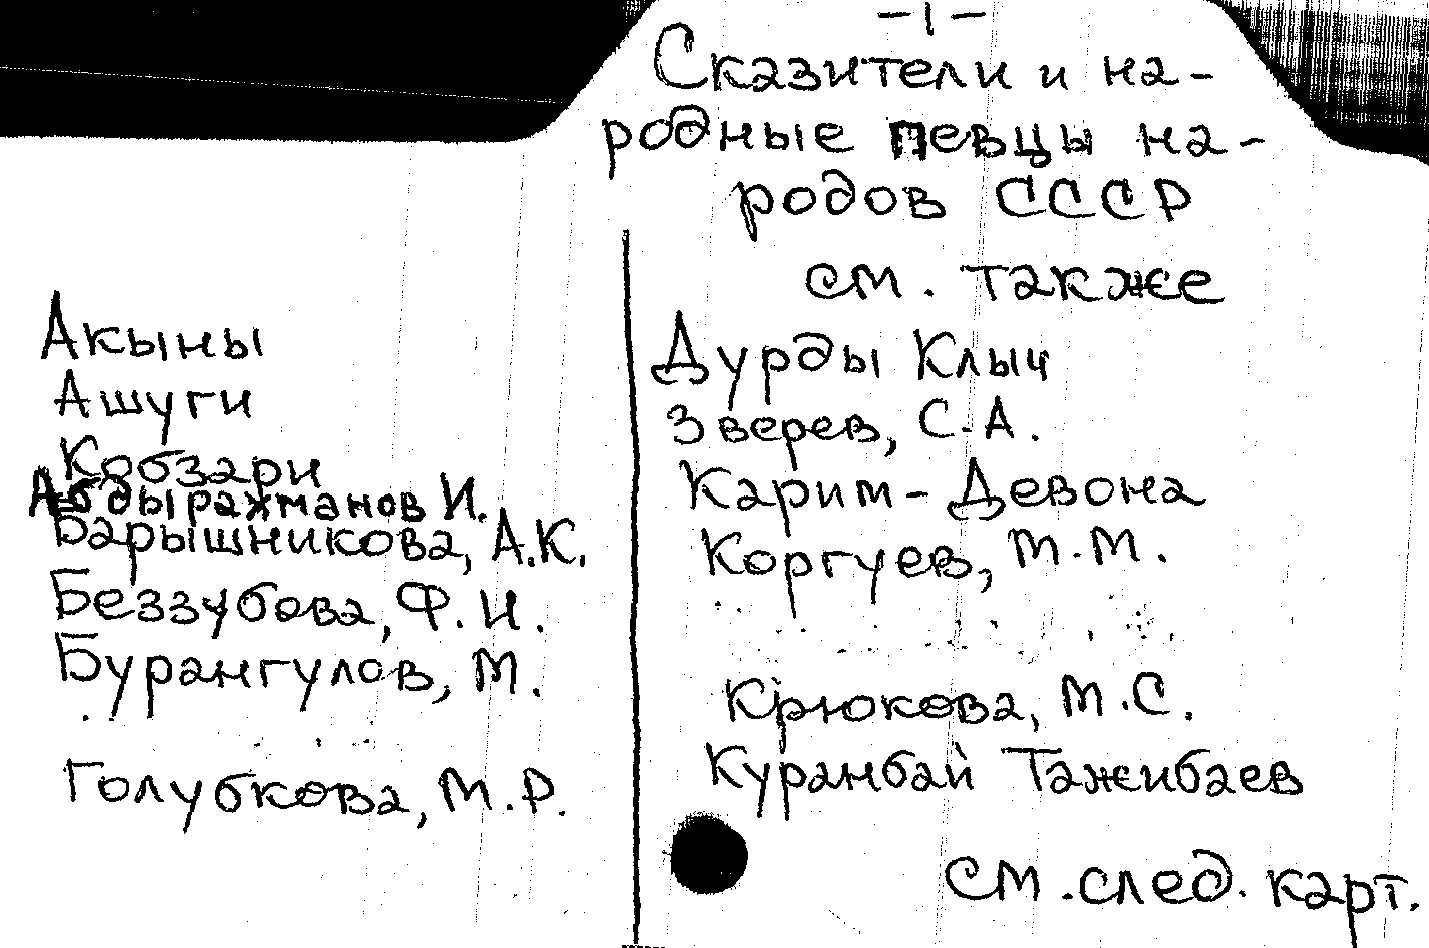 - 1 -
Сказители и на-
родные певцы на-
родов СССР
см. также
Акыны
Ашуги
Кобзари
Абдырахманов И.
Барышникова, А.К.
Беззубова, Ф.И.
Бурангулов, М.
Голубкова, М.Р.
Дурды Клыч
Зверев, С.А.
Карим-Девона
Коргуев, М.М.
Крюкова, М.С.
Куранбай Тажибаев
см. след. карт.